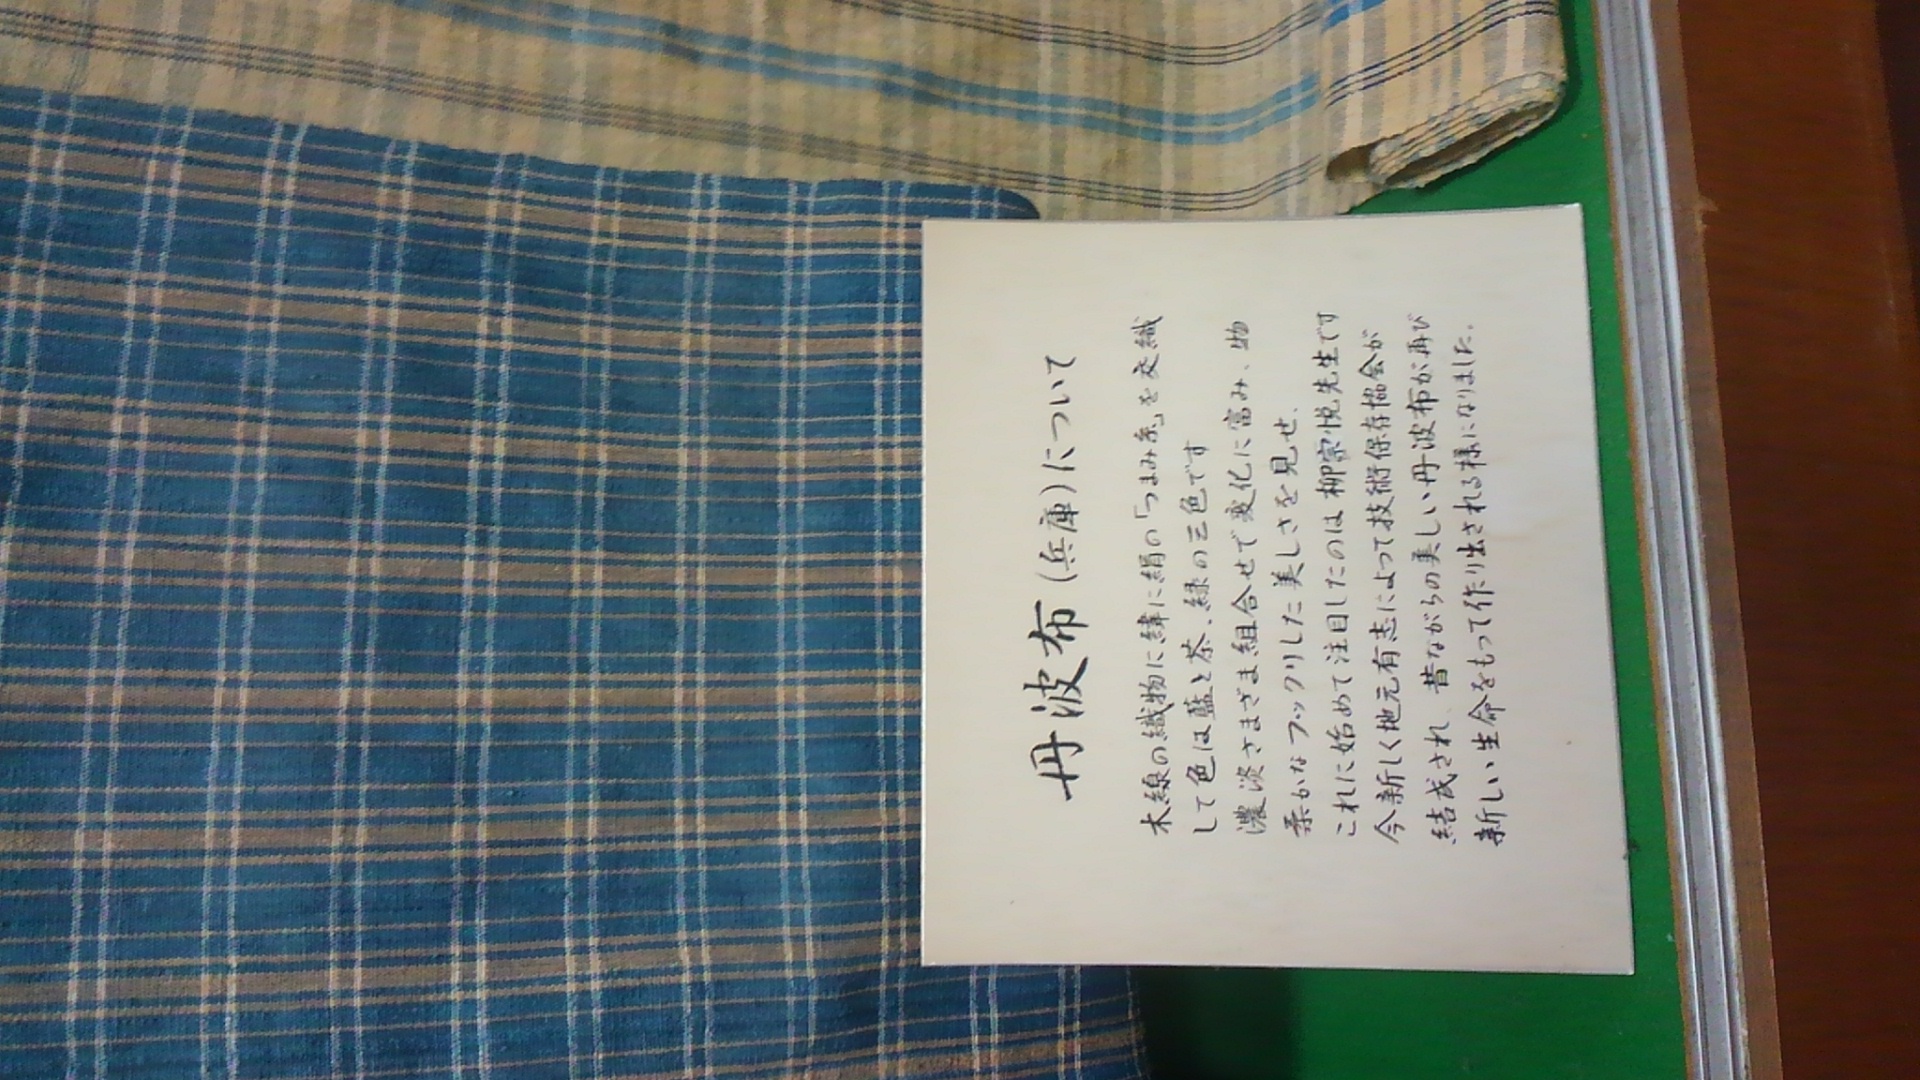 丹波布(兵庫)について
木綿の織物に緯に絹の「つまみ糸」を交織
して色は藍と茶、緑の三色です
濃淡さまざま組合せで変化に富み、物
柔かなフックリした美しさを見せ、
これに始めて注目したのは柳宗悦先生です
今新しく地元有志によって技術保存協会が
結成され、昔ながらの美しい丹波布が再び
新しい生命をもって作り出される様になりました。